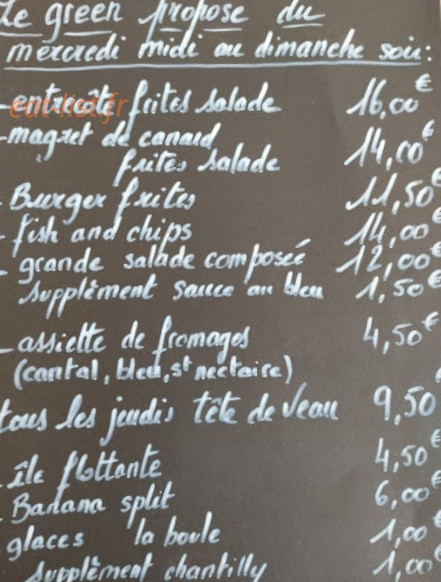 Le green propose du
mercredi midi au dimanche soir:
- entrecôte frites salade 16,00€
- magret de canard
frites salade 14,00€
- Burger frites 11,50€
- fish and chips 14,00€
- grande salade composée 12,00€
supplèment sauce au bleu 1,50€
- assiette de fromages 4,50€
(cantal, bleu, st nectaire)
tous les jeudis tête de veau 9,50€
- île flottante 4,50€
- Banana split 6,00€
- glaces la boule 1,00€
supplèment chantilly 1,00€